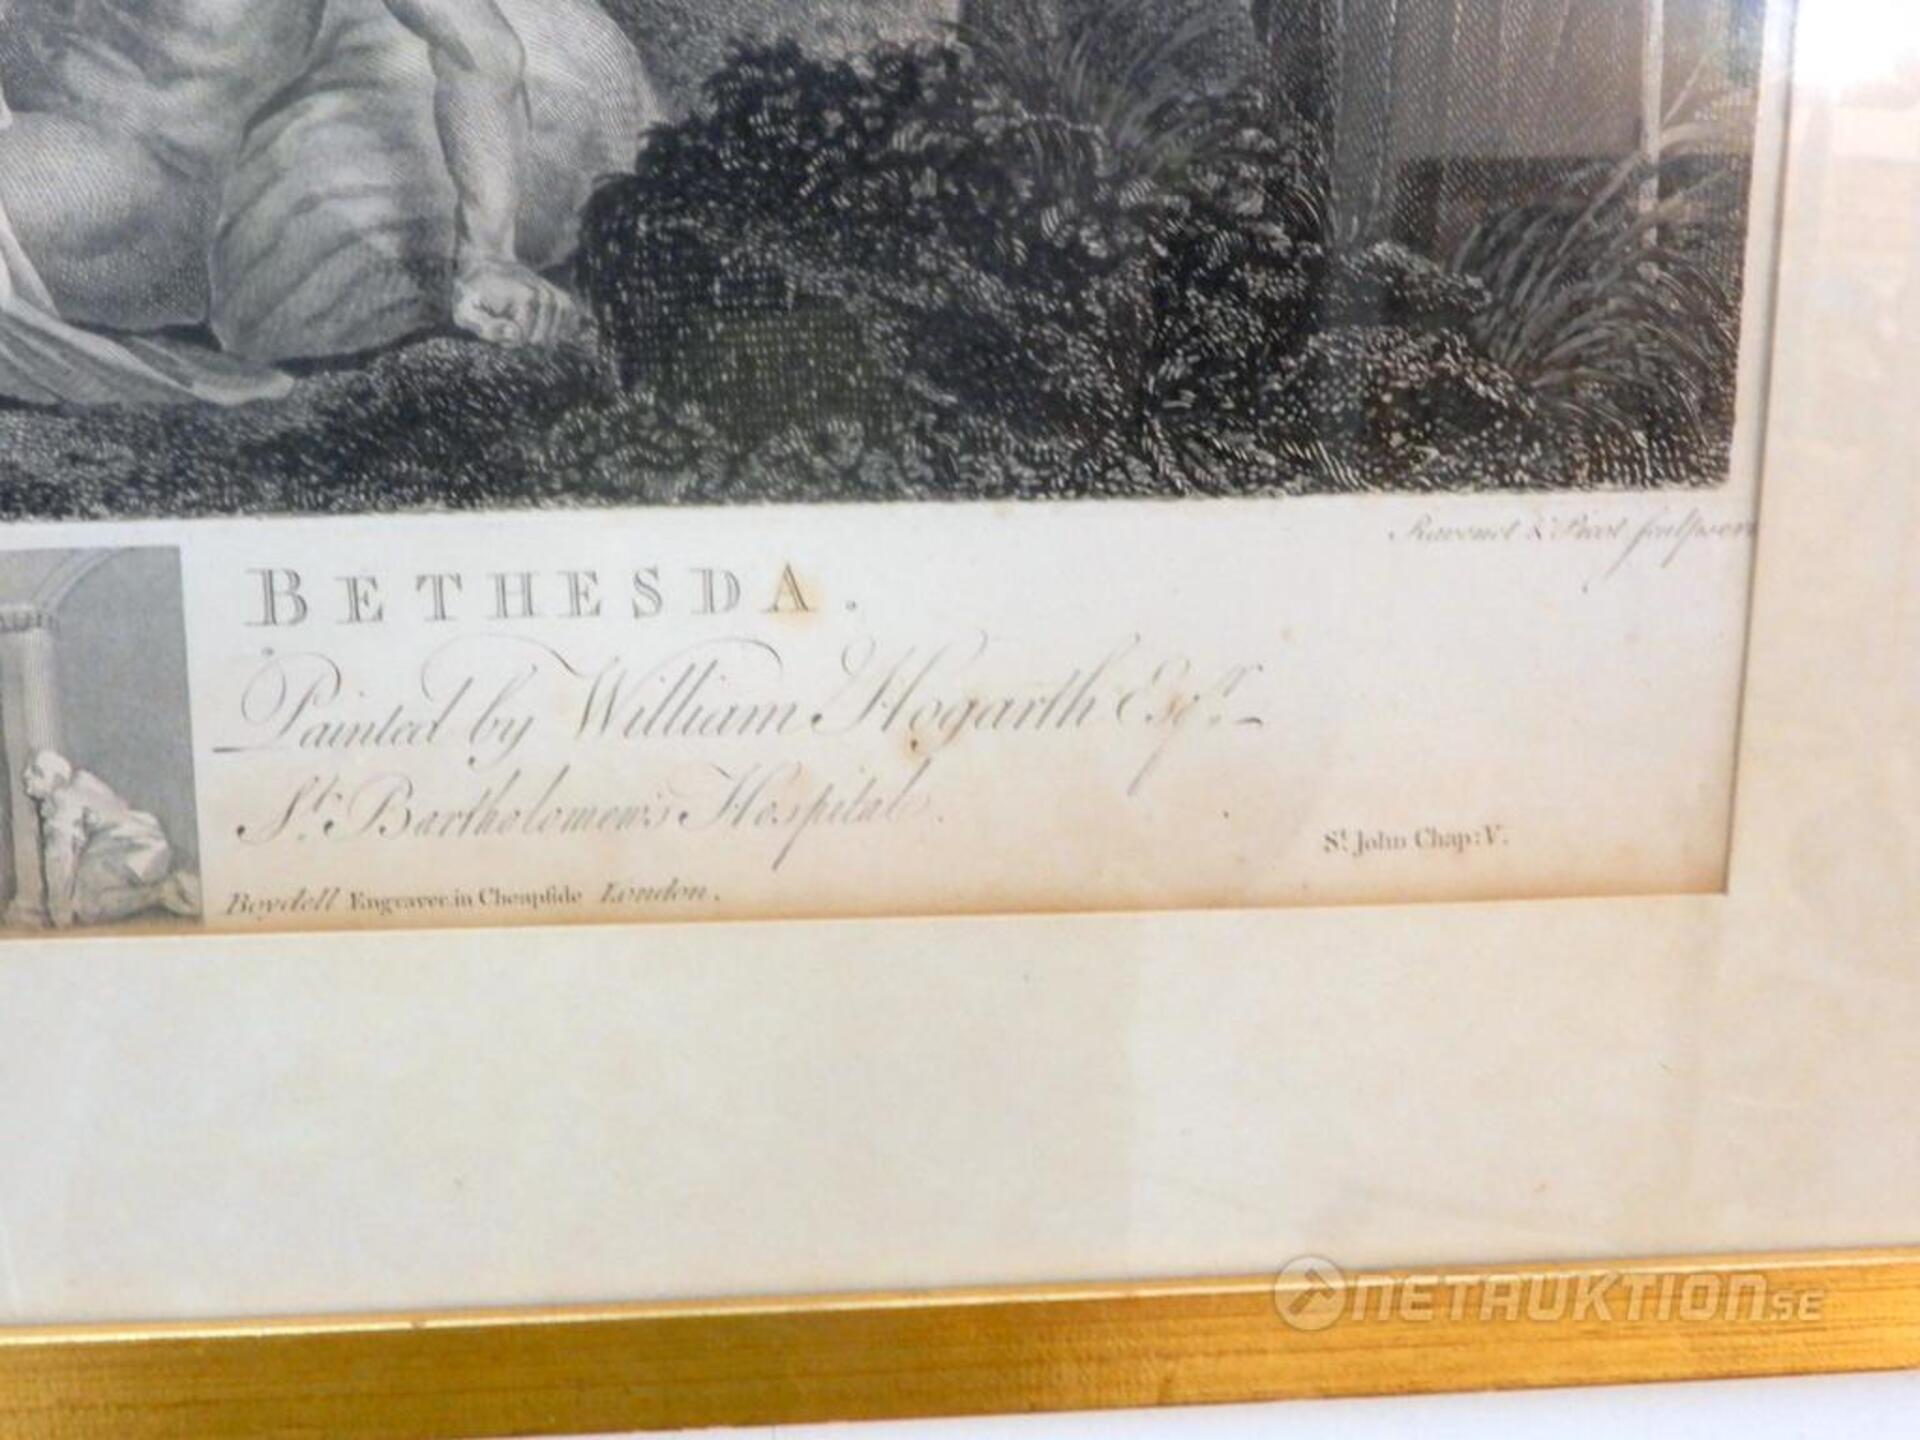 Ravenet & Picot sculpserunt
BETHESDA.
Painted by William Hogarth Esqr.
St. Bartholomew's Hospital.
St. John Chap: V.
Boydell Engraver in Cheapside London.
NETAUKTION.SE